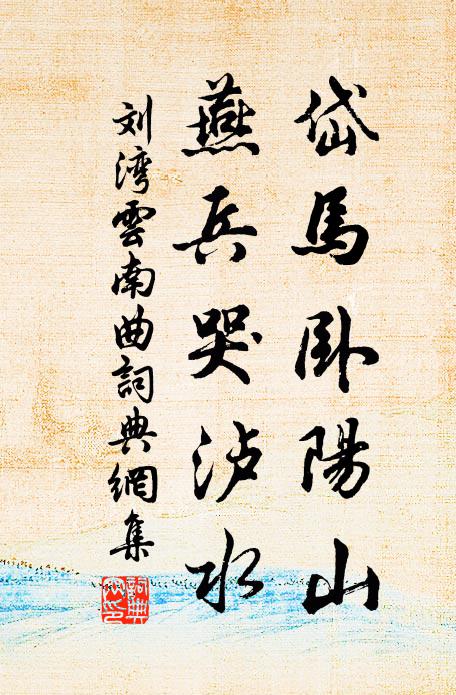 岱馬卧陽山
燕兵哭泸水
刘湾雲南曲詞典網集